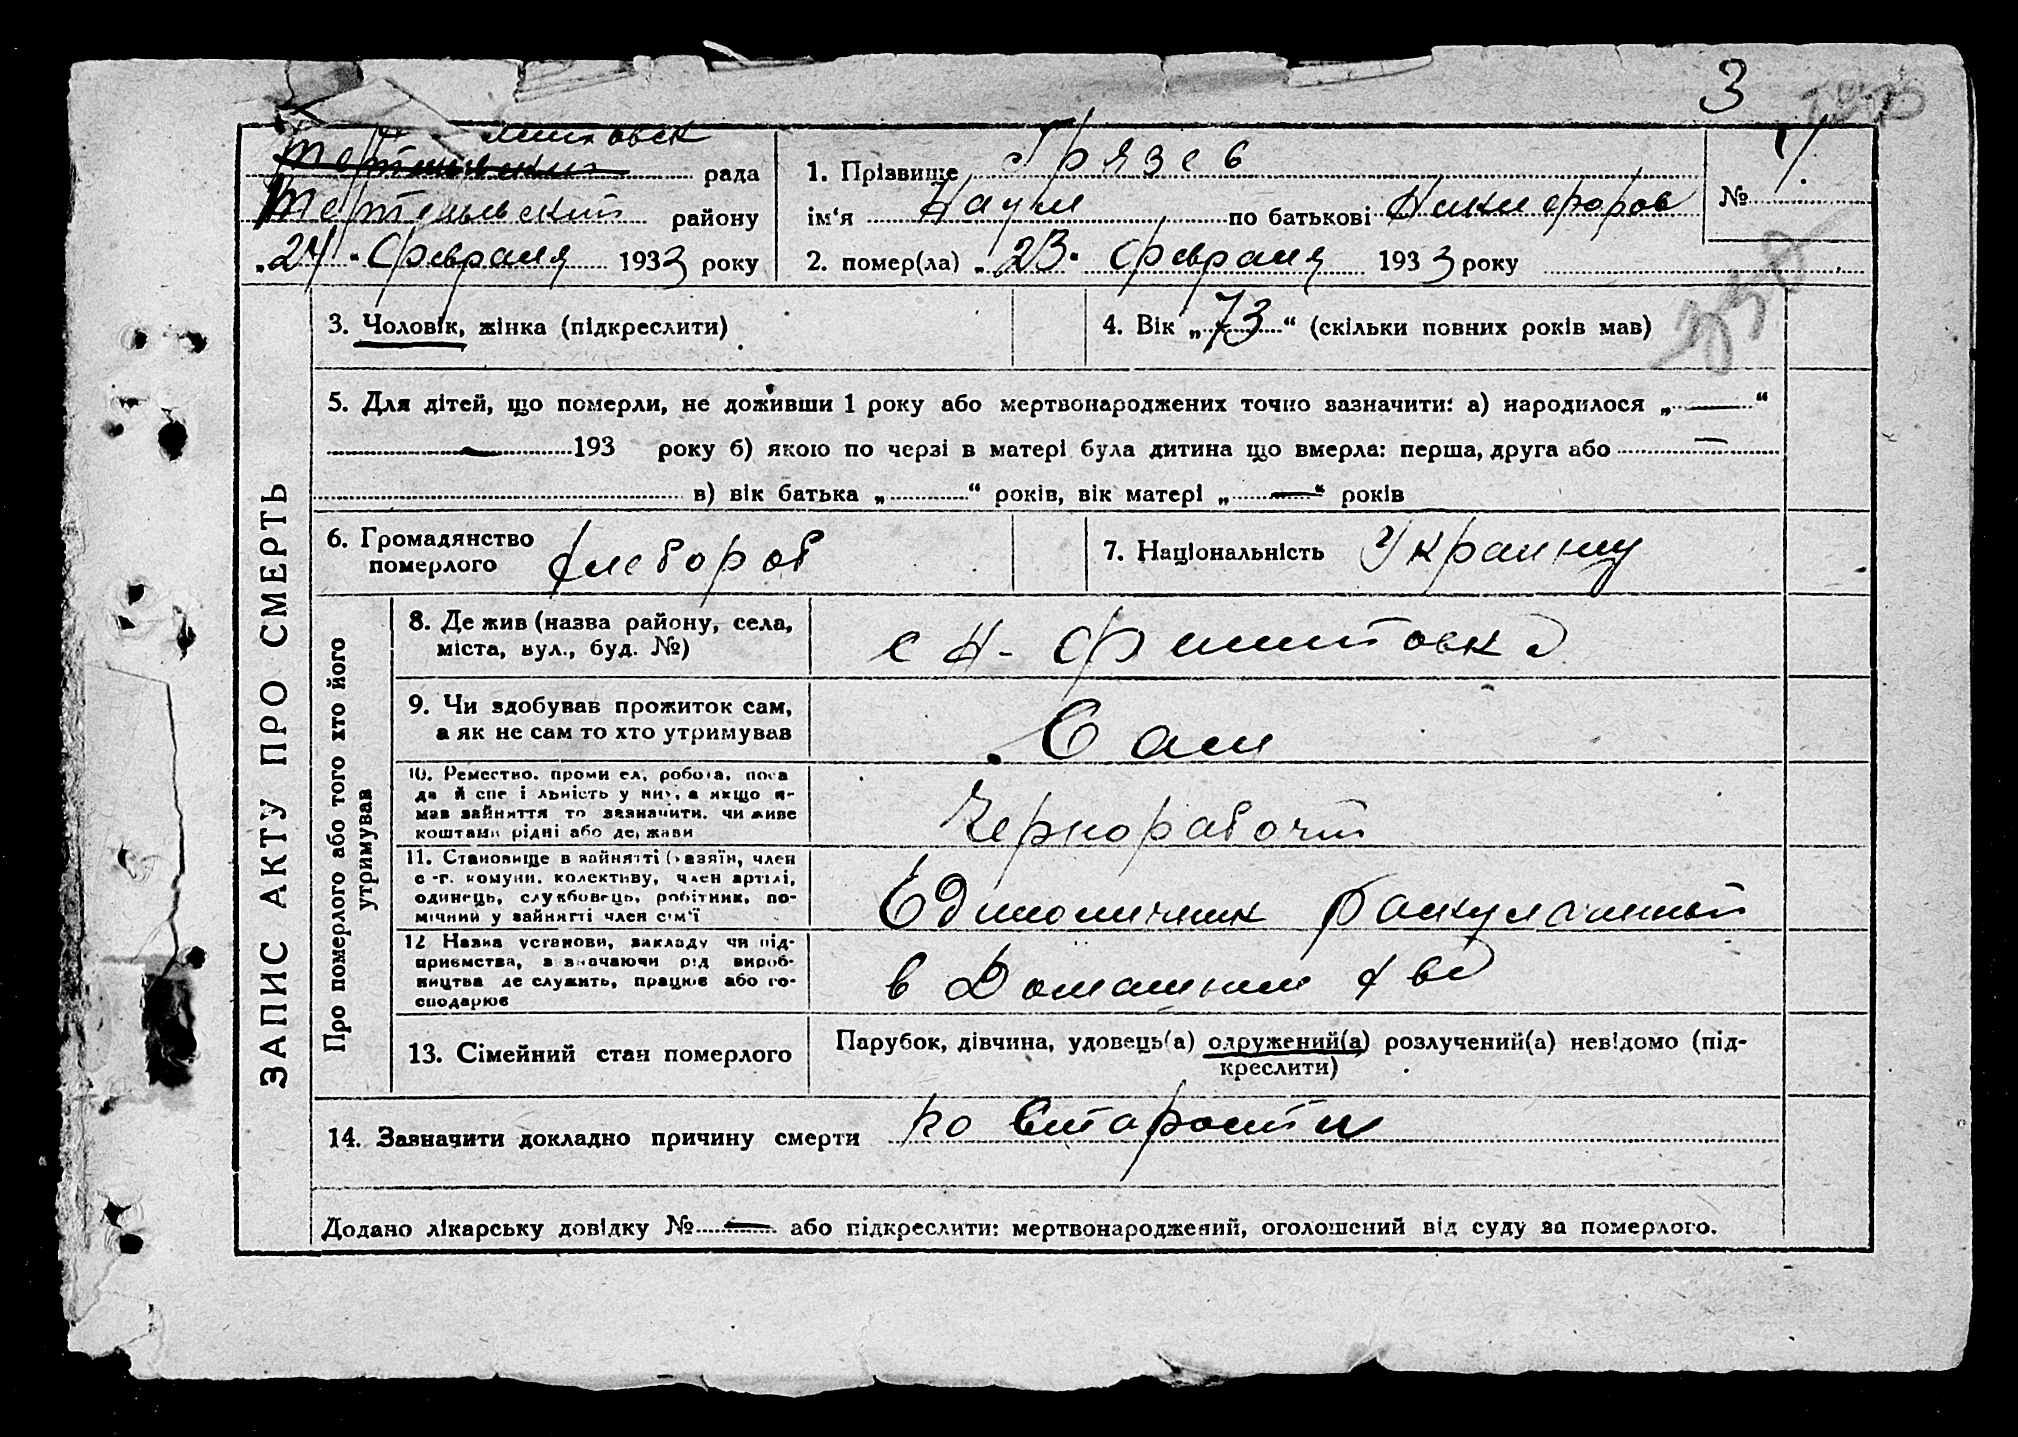 3
рада
району
„24“ Февраля 1933 року
1. Прізвище Грязев
ім‘я Наум по батькові Никифоров
2. помер(ла) „23“ Февраля 1933 року
№
ЗАПИС АКТУ ПРО СМЕРТЬ
3. Чоловік, жінка (підкреслити)
4. Вік „73“ (скільки повних років мав)
5. Для дітей, що померли, не доживши 1 року або мертвонароджених точно зазначити: а) народилося „—“
— 193 року б) якою по черзі в матері була дитина що вмерла: перша, друга або —
в) вік батька „“ років, вік матері „—“ років
6. Громадянство
померлого
хлебороб
7. Національність
Про померлого або того хто його
утримував
8. Де жив (назва району, села,
міста, вул., буд. №)
с Н-
9. Чи здобував прожиток сам,
а як не сам то хто утримував
Сам
10. Ремество, робота,
мав зайняття то зазначити, чи живе
коштами рідні або держави
Чернорабочий
11. Становище в зайнятті (хазяїн, член
с-г. комуни, колективу, член артілі,
одинець, службовець, робітник, по-
мічний у зайнятті член сім‘ї
Единоличник
12 Назва установи, закладу чи під-
приємства, зазначаючи рід вироб-
ництва де служить, працює або го-
сподарює
в Домашним
13. Сімейний стан померлого
Парубок, дівчина, удовець(а) одружений(а) розлучений(а) невідомо (під-
креслити)
14. Зазначити докладно причину смерти по старости
Додано лікарську довідку № — або підкреслити: мертвонароджений, оголошений від суду за померлого.